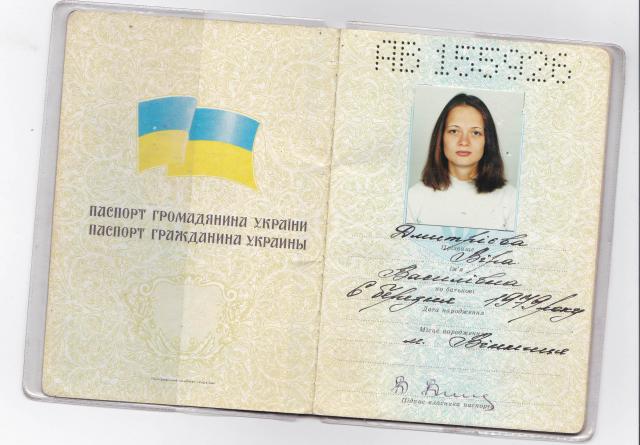 ПАСПОРТ ГРОМАДЯНИНА УКРАЇНИ
ПАСПОРТ ГРАЖДАНИНА УКРАИНЫ
АВ 155926
Дмитрієва
Прізвище
Віра
Ім'я
Василівна
по батькові
6 березня 1979 року
Дата народження
Місце народження
м. Вінниця
Підпис власника паспорта